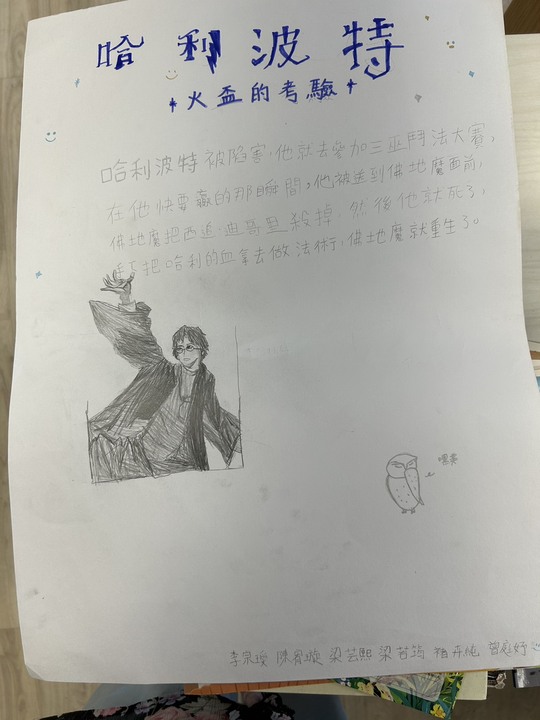 哈利波特
火盃的考驗
哈利波特被陷害,他就去參加三巫鬥法大賽,
在他快要贏的那瞬間,他被送到佛地魔面前,
佛地魔把西追·迪哥里殺掉,然後他就死了,
把哈利的血拿去做法術,佛地魔就重生了。
嘿美
李宗 陳宥璇 梁芸熙 梁 丹 曾庭妤